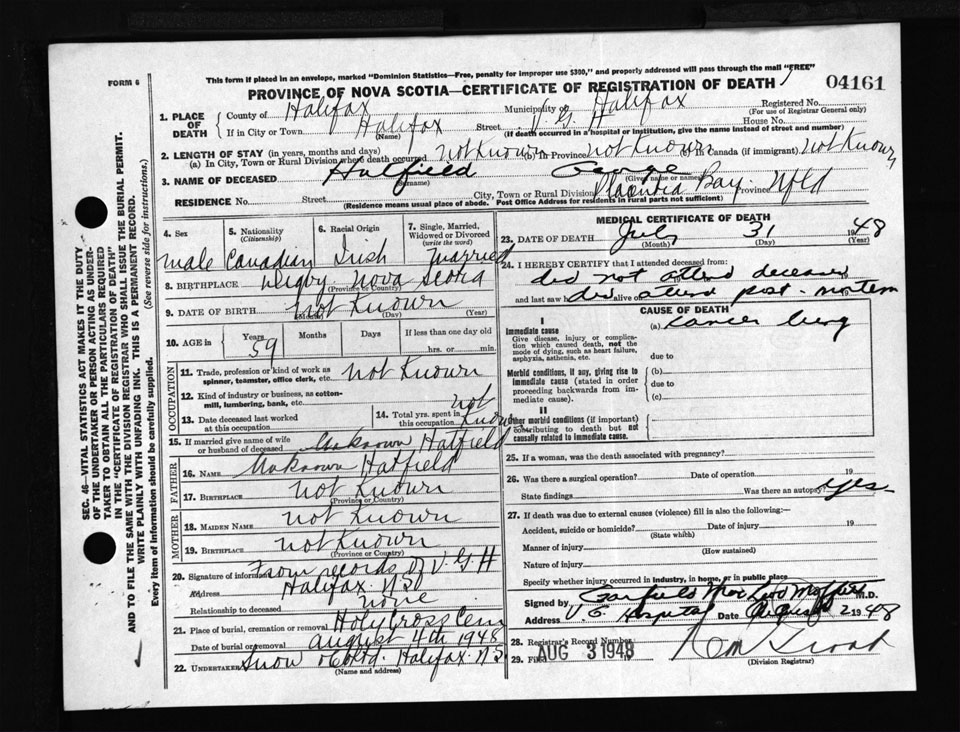 FORM 6
This form if placed in an envelope, marked "Dominion Statistics—Free, penalty for improper use $300," and properly addressed will pass through the mail "FREE"
PROVINCE OF NOVA SCOTIA—CERTIFICATE OF REGISTRATION OF DEATH
04161
1. PLACE OF DEATH
County of Halifax Municipality Halifax Registered No.
(For use of Registrar General only)
If in City or Town Halifax Street V. G. Halifax House No.
(Name) (If death occurred in a hospital or institution, give the name instead of street and number)
2. LENGTH OF STAY (in years, months and days)
(a) In City, Town or Rural Division where death occurred not Known (b) In Province not Known (c) In Canada (if immigrant) not Known
3. NAME OF DECEASED Hatfield George
(Surname) (Given name or names)
RESIDENCE No. Street City, Town or Rural Division Placentia Bay Province Nfld
(Residence means usual place of abode. Post Office Address for residents in rural parts not sufficient)
4. Sex
male
5. Nationality (Citizenship)
Canadian
6. Racial Origin
Irish
7. Single, Married, Widowed or Divorced (write the word)
married
8. BIRTHPLACE Digby Nova Scotia
(Province or Country)
9. DATE OF BIRTH Not Known
(Day) (Year)
10. AGE in Years Months Days If less than one day old
59 hrs. or min.
OCCUPATION
11. Trade, profession or kind of work as spinner, teamster, office clerk, etc. not Known
12. Kind of industry or business, as cotton-mill, lumbering, bank, etc.
13. Date deceased last worked at this occupation
14. Total yrs. spent in this occupation not Known
15. If married give name of wife or husband of deceased Unknown Hatfield
FATHER
16. Name Unknown Hatfield
17. Birthplace not Known
(Province or Country)
MOTHER
18. Maiden Name not Known
19. Birthplace not Known
(Province or Country)
20. Signature of informant From records of V. G H
Address Halifax N.S.
Relationship to deceased none
21. Place of burial, cremation or removal Holy Cross Cem
Date of burial or removal august 4th 1948
22. Undertaker Snow & Co Ltd. Halifax N.S.
(Name and address)
MEDICAL CERTIFICATE OF DEATH
23. DATE OF DEATH July 31 1948
(Month) (Day) (Year)
24. I HEREBY CERTIFY that I attended deceased from:
did not attend deceased
and last saw h alive on did attend post-mortem
CAUSE OF DEATH
I
Immediate cause
Give disease, injury or complication which caused death, not the mode of dying, such as heart failure, asphyxia, asthenia, etc.
(a) cancer lung
due to
Morbid conditions, if any, giving rise to immediate cause (stated in order proceeding backwards from immediate cause).
(b)
due to
(c)
II
Other morbid conditions (if important) contributing to death but not causally related to immediate cause.
25. If a woman, was the death associated with pregnancy?
26. Was there a surgical operation? Date of operation 19
State findings Was there an autopsy? yes
27. If death was due to external causes (violence) fill in also the following:—
Accident, suicide or homicide? Date of injury 19
(State which)
Manner of injury
(How sustained)
Nature of injury
Specify whether injury occurred in industry, in home, or in public place
Signed by M.D.
Address V. G. Hospital Date August 2 1948
28. Registrar's Record Number
29. Filed AUG 3 1948
(Division Registrar)
SEC. 46—VITAL STATISTICS ACT MAKES IT THE DUTY OF THE UNDERTAKER OR PERSON ACTING AS UNDERTAKER TO OBTAIN ALL THE PARTICULARS REQUIRED IN THE "CERTIFICATE OF REGISTRATION OF DEATH" AND TO FILE THE SAME WITH THE DIVISION REGISTRAR WHO SHALL ISSUE THE BURIAL PERMIT.
WRITE PLAINLY WITH UNFADING INK. THIS IS A PERMANENT RECORD.
Every item of information should be carefully supplied. (See reverse side for instructions.)